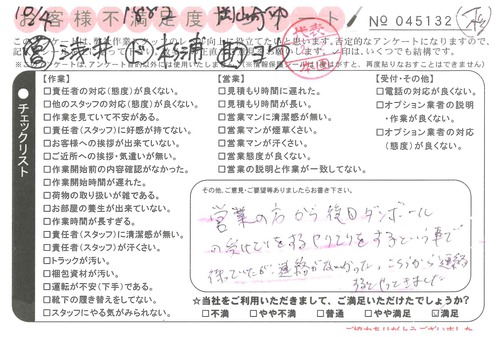 お客様不満足度アンケート
№ 045132
チェックリスト
【作業】
□責任者の対応(態度)が良くない。
□他のスタッフの対応(態度)が良くない。
□作業を見ていて不安がある。
□責任者(スタッフ)に好感が持てない。
□お客様への挨拶が出来ていない。
□ご近所への挨拶・気遣いが無い。
□作業開始前の内容確認がなかった。
□作業開始時間が遅れた。
□荷物の取り扱いが雑である。
□お部屋の養生が出来ていない。
□作業時間が長すぎる。
□責任者(スタッフ)に清潔感が無い。
□責任者(スタッフ)が汗くさい。
□トラックが汚い。
□梱包資材が汚い。
□運転が不安(下手)である。
□靴下の履き替えをしてない。
□スタッフにやる気がみられない。
【営業】
□見積もり時間に遅れた。
□見積もり時間が長い。
□営業マンに清潔感が無い。
□営業マンが煙草くさい。
□営業マンが汗くさい。
□営業態度が良くない。
□営業の説明と作業が一致してない。
【受付・その他】
□電話の対応が良くない。
□オプション業者の説明
・作業が良くない。
□オプション業者の対応
(態度)が良くない。
その他、ご意見・ご要望等ありましたらお書き下さい。
営業の方から後日ダンボール
の受けとりをするやりとりをするという事で
待っていたが、連絡がなかった。こちらから連絡
☆当社をご利用いただきまして、ご満足いただけたでしょうか?
□不満 □やや不満 □普通 □やや満足 ☑満足
ご協力ありがとうございました